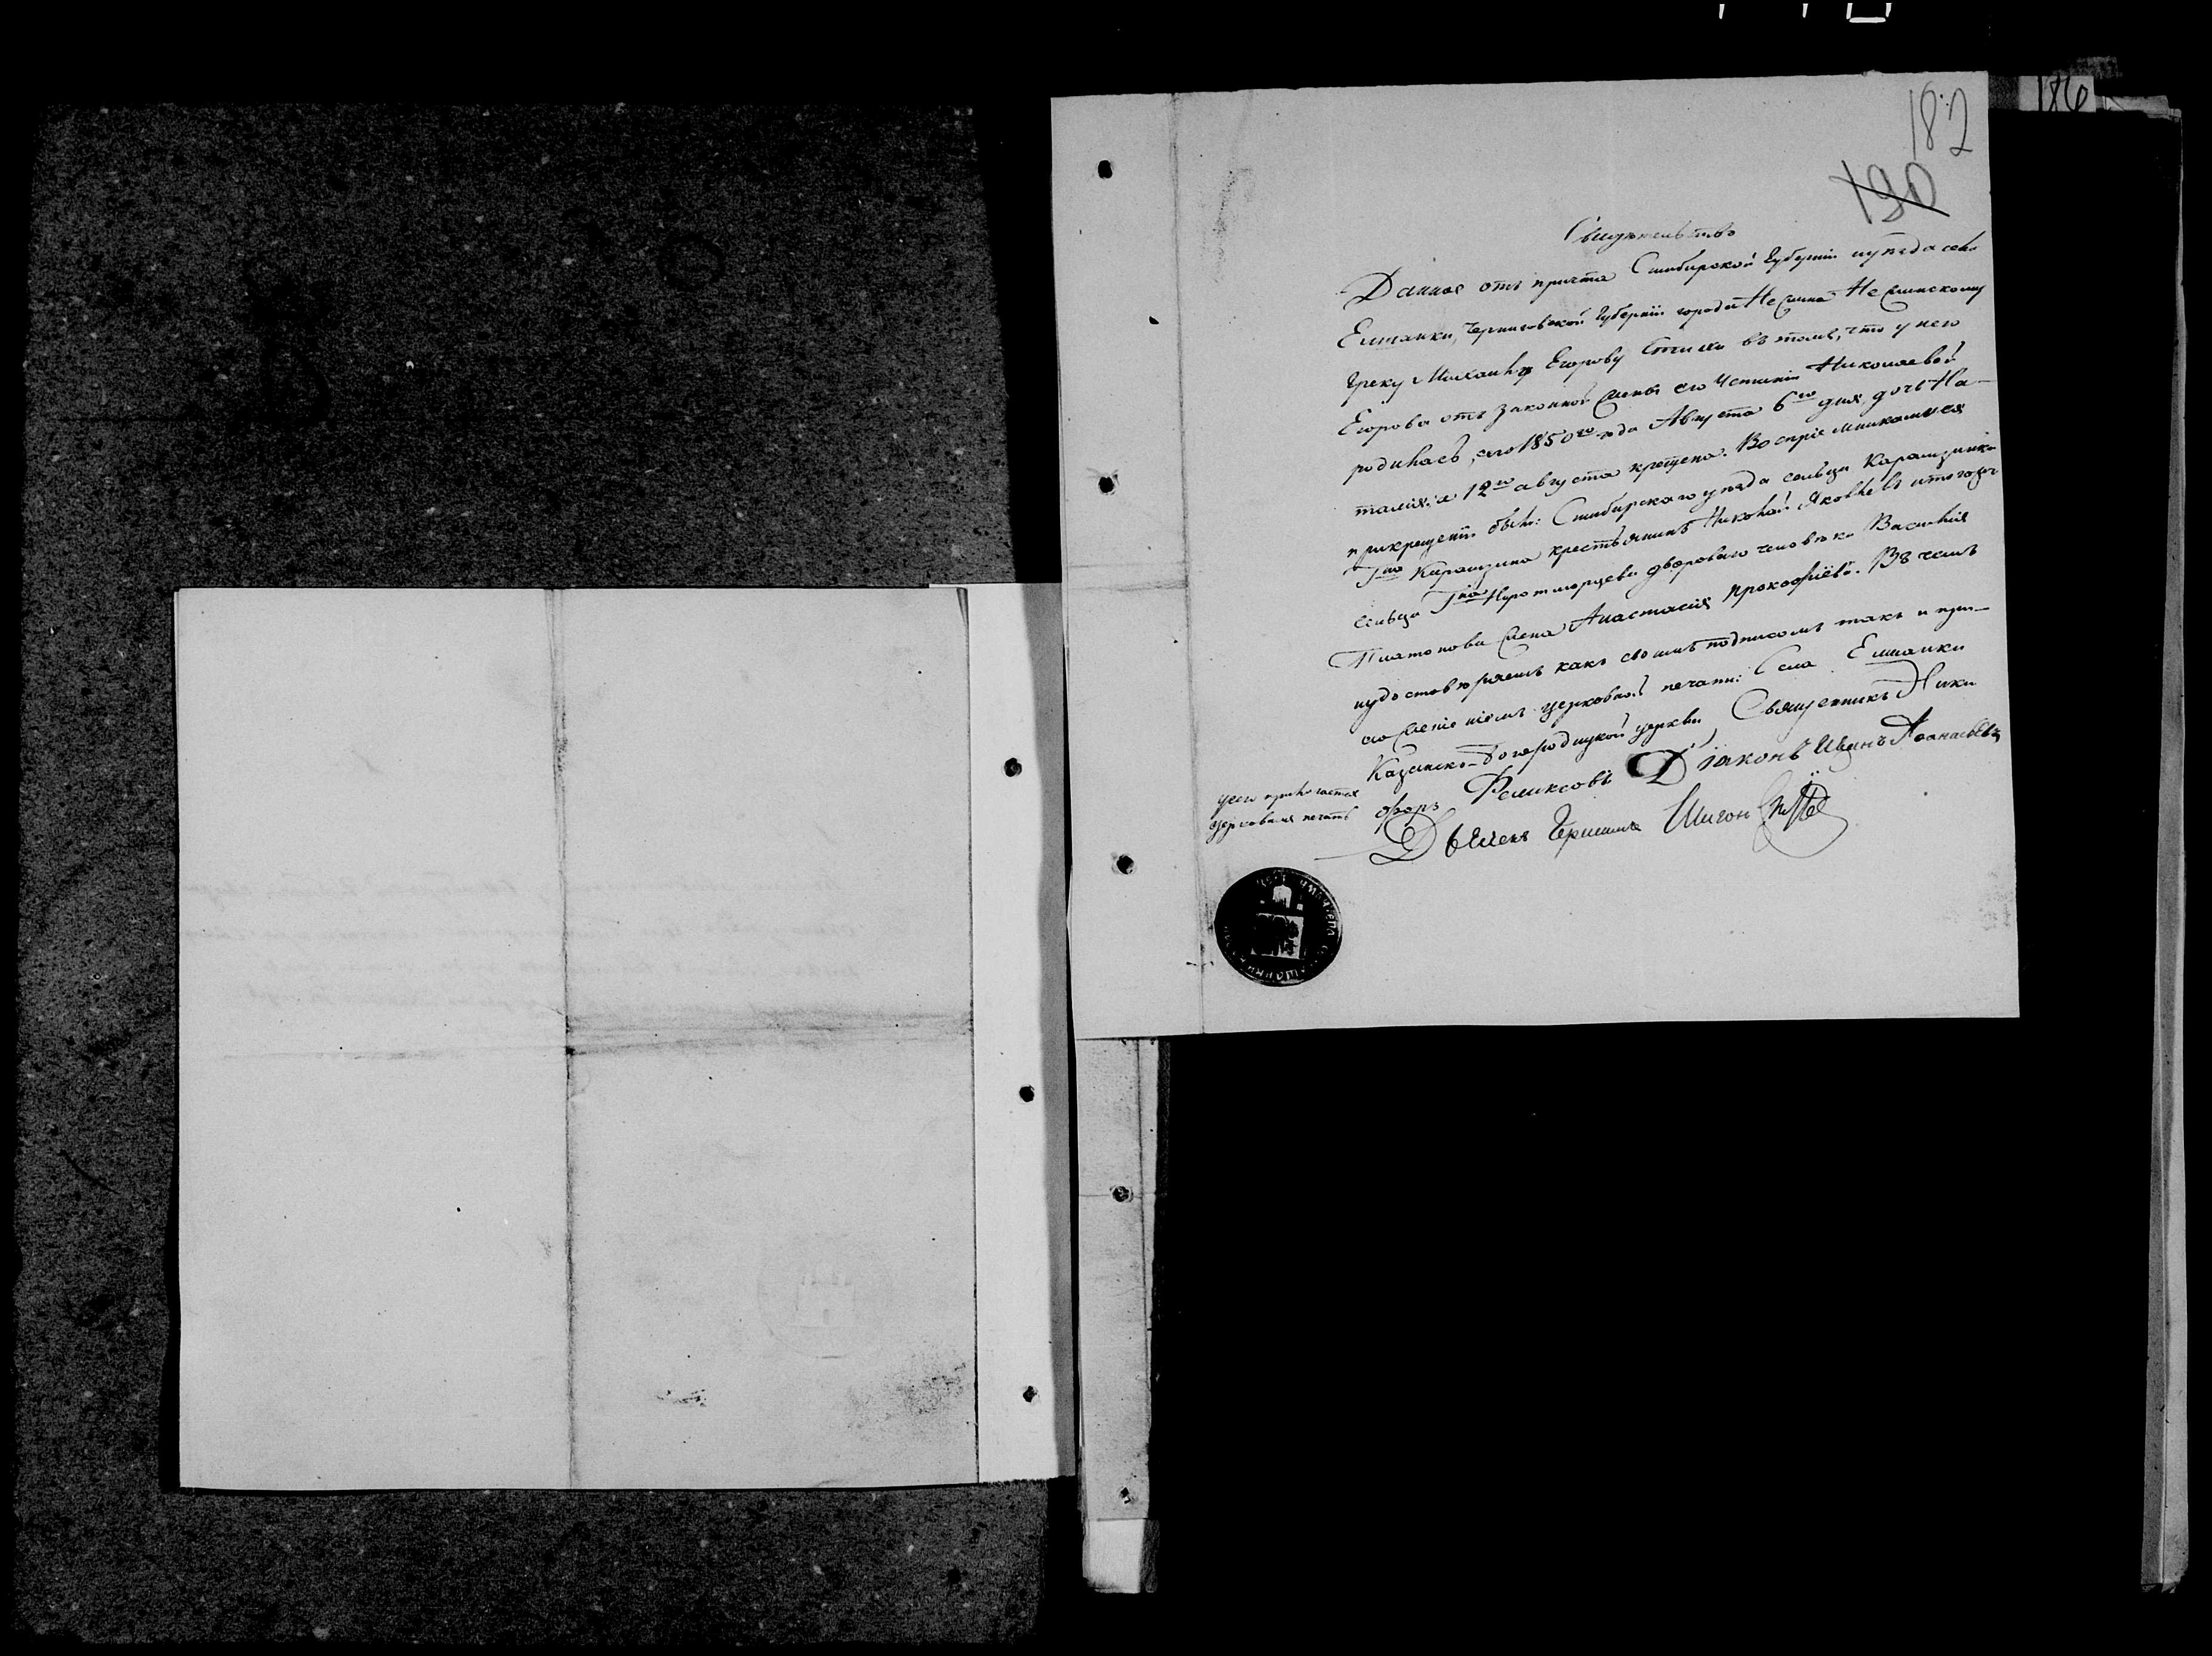 186
182
190
Свидѣтельство
Данное отъ причта Симбирской Губерніи и уѣзда села
Елшанки, Черниговской Губерніи города Нежина Нежинскому
Греку Михаилу Егорову въ томъ, что у него
Егорова отъ законной жены его Устиніи Николаевой
родилась, сего 1850го года Августа 6го дня, дочь На-
талія, а 12го августа крещена. Воспріемниками ея
при крещеніи были: Симбирскаго уѣзда сельца Карамзинки
Гна Карамзина крестьянинъ Николай Яковлевъ и того же
сельца Гна дворового человѣка Василія
Платонова жена Анастасія Прокофіева. Въ чемъ
и удостовѣряемъ какъ своимъ подписомъ такъ и при-
ложеніемъ церковной печати: Села Елшанки
Казанско-Богородицкой церкви Священникъ Ники
форъ Феликсовъ Діаконъ Иванъ Аѳанасьевъ
У сего прилагается
церковная печать